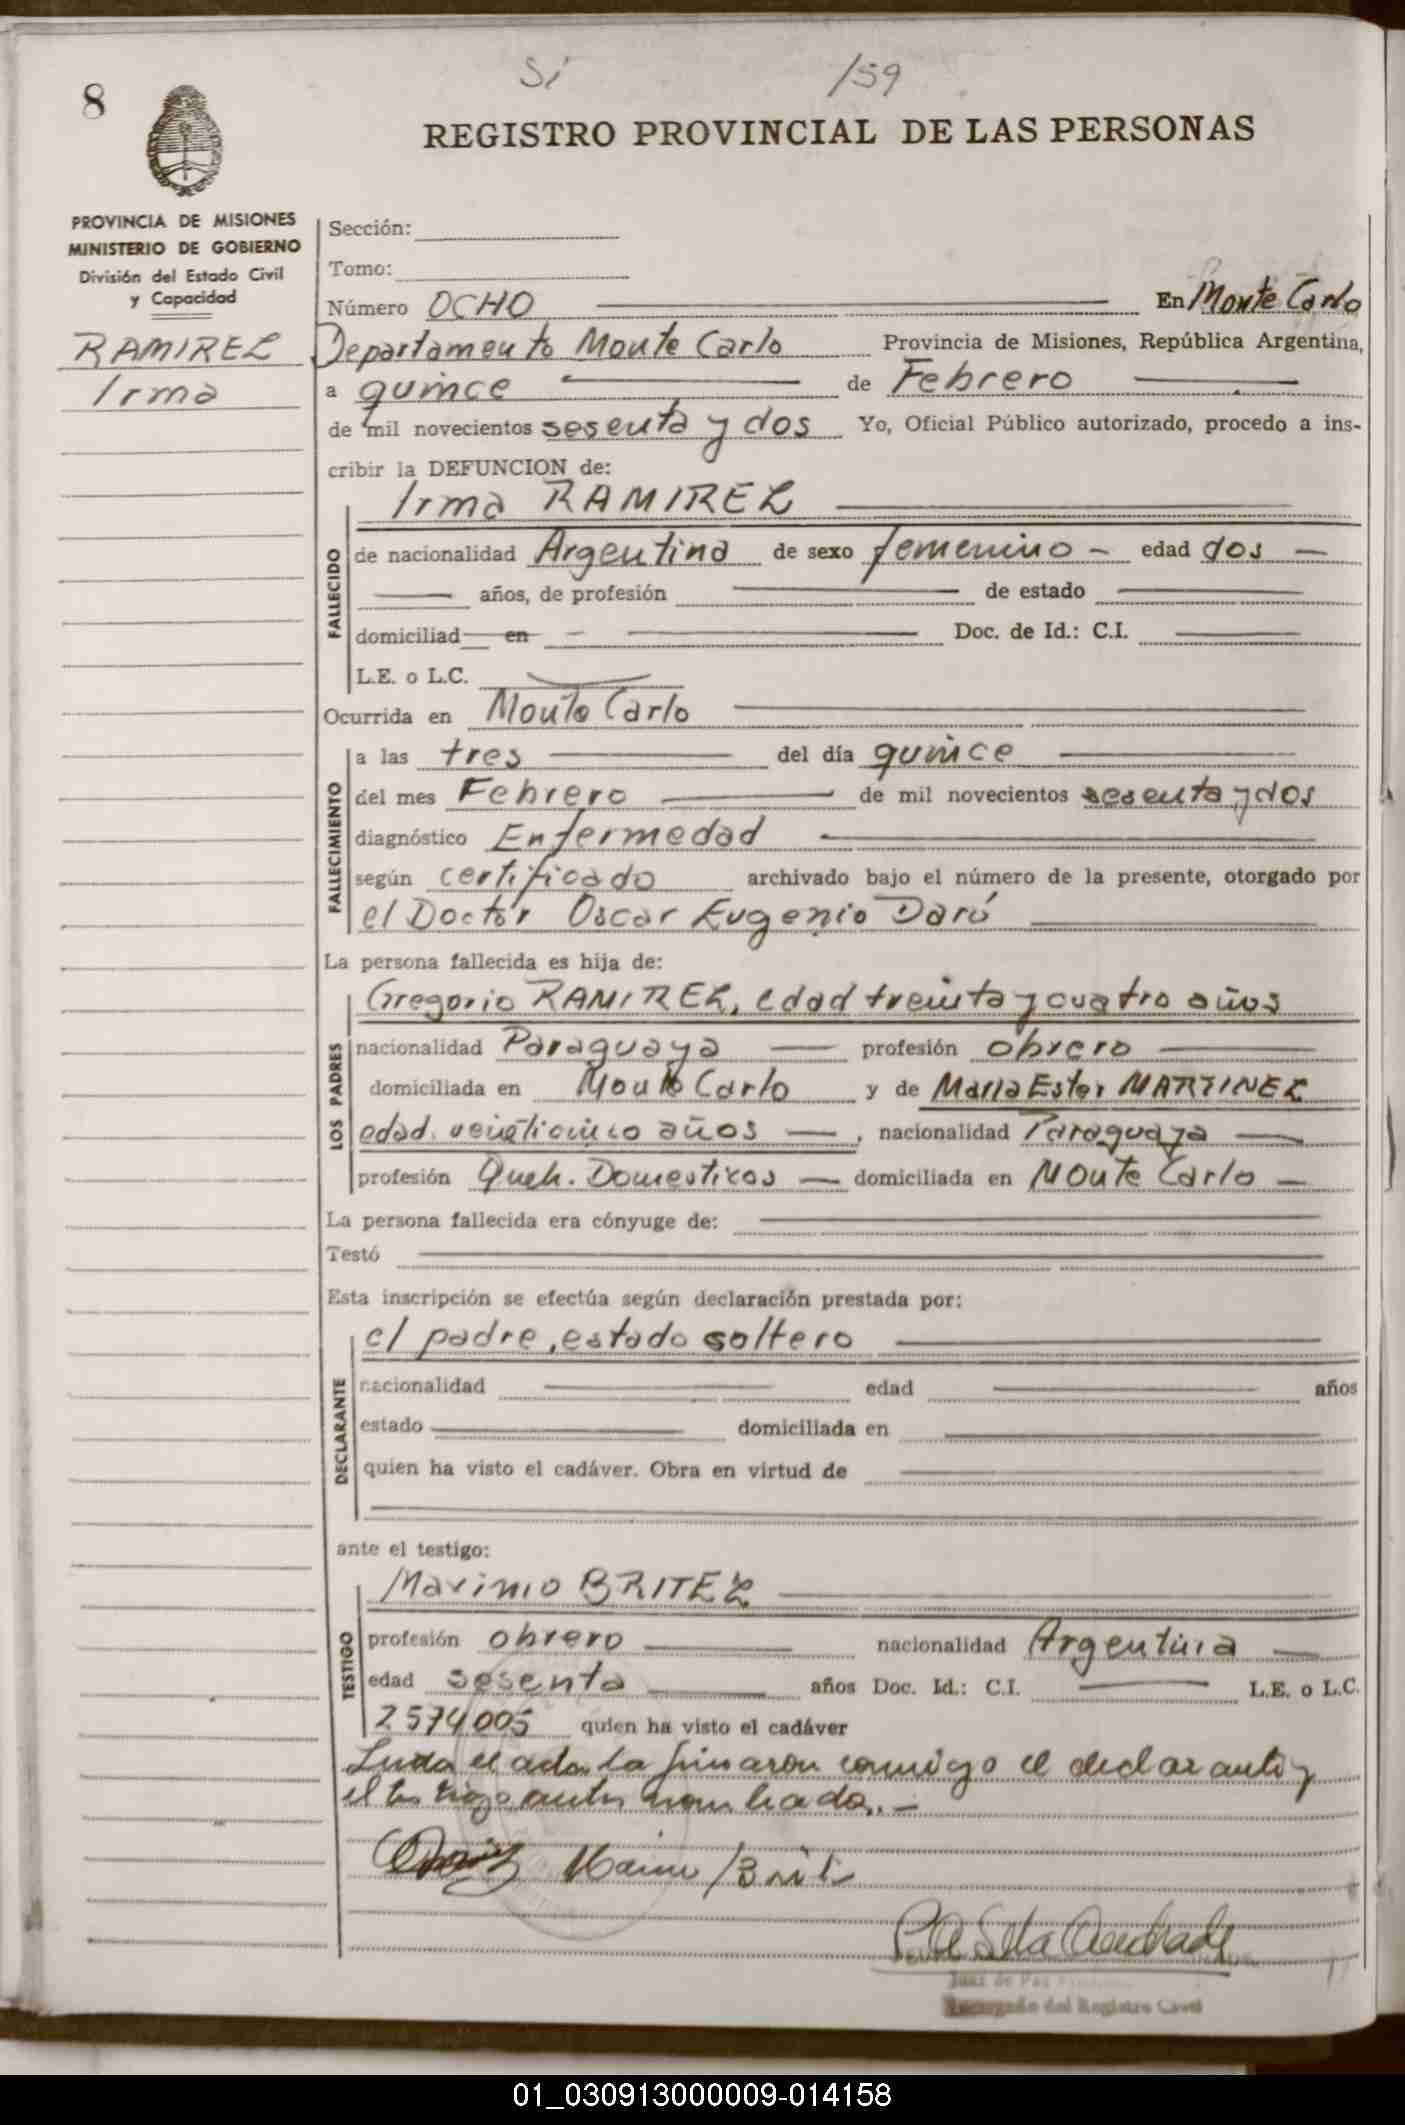 Si /59
8
REGISTRO PROVINCIAL DE LAS PERSONAS
PROVINCIA DE MISIONES
MINISTERIO DE GOBIERNO
División del Estado Civil
y Capacidad
RAMIREZ
Irma
Sección:
Tomo:
Número OCHO En Monte Carlo
Departamento Monte Carlo Provincia de Misiones, República Argentina,
a quince de Febrero
de mil novecientos sesenta y dos Yo, Oficial Público autorizado, procedo a ins-
cribir la DEFUNCION de:
Irma RAMIREZ
FALLECIDO
de nacionalidad Argentina de sexo femenino - edad dos
años, de profesión de estado
domiciliad en Doc. de Id.: C.I.
L.E. o L.C.
Ocurrida en Monte Carlo
FALLECIMIENTO
a las tres del día quince
del mes Febrero de mil novecientos sesenta y dos
diagnóstico Enfermedad
según certificado archivado bajo el número de la presente, otorgado por
el Doctor Oscar Eugenio Daró
La persona fallecida es hija de:
LOS PADRES
Gregorio RAMIREZ, edad treinta y cuatro años
nacionalidad Paraguaya profesión obrero
domiciliada en Monte Carlo y de Maria Ester MARTINEZ
edad veinticinco años , nacionalidad Paraguaya
profesión Queh. Domesticos domiciliada en Monte Carlo
La persona fallecida era cónyuge de:
Testó
Esta inscripción se efectúa según declaración prestada por:
DECLARANTE
el padre, estado soltero
nacionalidad edad años
estado domiciliada en
quien ha visto el cadáver. Obra en virtud de
ante el testigo:
TESTIGO
Maximo BRITEZ
profesión obrero nacionalidad Argentina
edad sesenta años Doc. Id.: C.I. L.E. o L.C.
2574005 quien ha visto el cadáver
el acta la firmaron conmigo el declarante y
el testigo antes nombrado.-
Juez de Paz
Encargado del Registro Civil
01_030913000009-014158